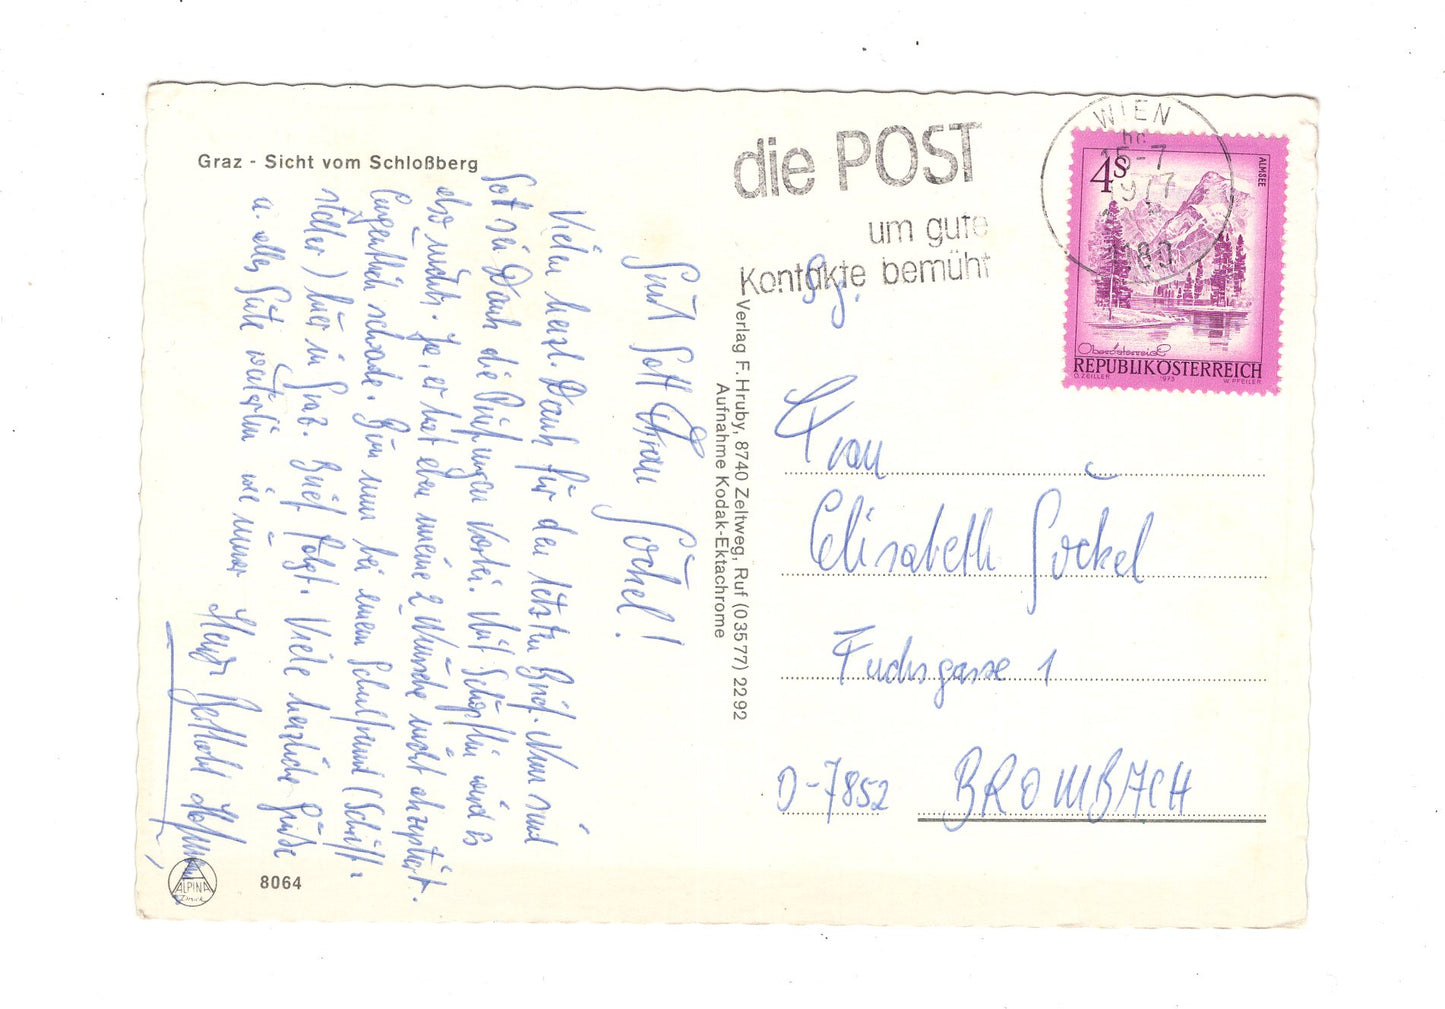 Graz - Sicht vom Schloßberg
Grüß Gott Frau Göckel!
Vielen herzl. Dank für den letzten Brief. Nun sind
Gott sei Dank die Prüfungen vorbei. Mit Schopfheim wird es
also nichts. Ja, er hat eben meine 2 Wünsche nicht akzeptiert.
Eigentlich schade. Bin nun bei einem (Schrift-
steller) hier in Graz. Brief folgt. Viele herzliche Grüße
u. alles Gute weiterhin wie immer
8064
ALPINA
Druck
Verlag F. Hruby, 8740 Zeltweg, Ruf (03577) 2292
Aufnahme Kodak-Ektachrome
die POST
um gute
Kontakte bemüht
WIEN
15-7
1977
1180
4S
ALMSEE
Oberösterreich
REPUBLIK ÖSTERREICH
O. ZEILLER 1973 W. PFEILER
Sg.
Frau
Elisabeth Göckel
Fuchsgasse 1
D-7852 BROMBACH